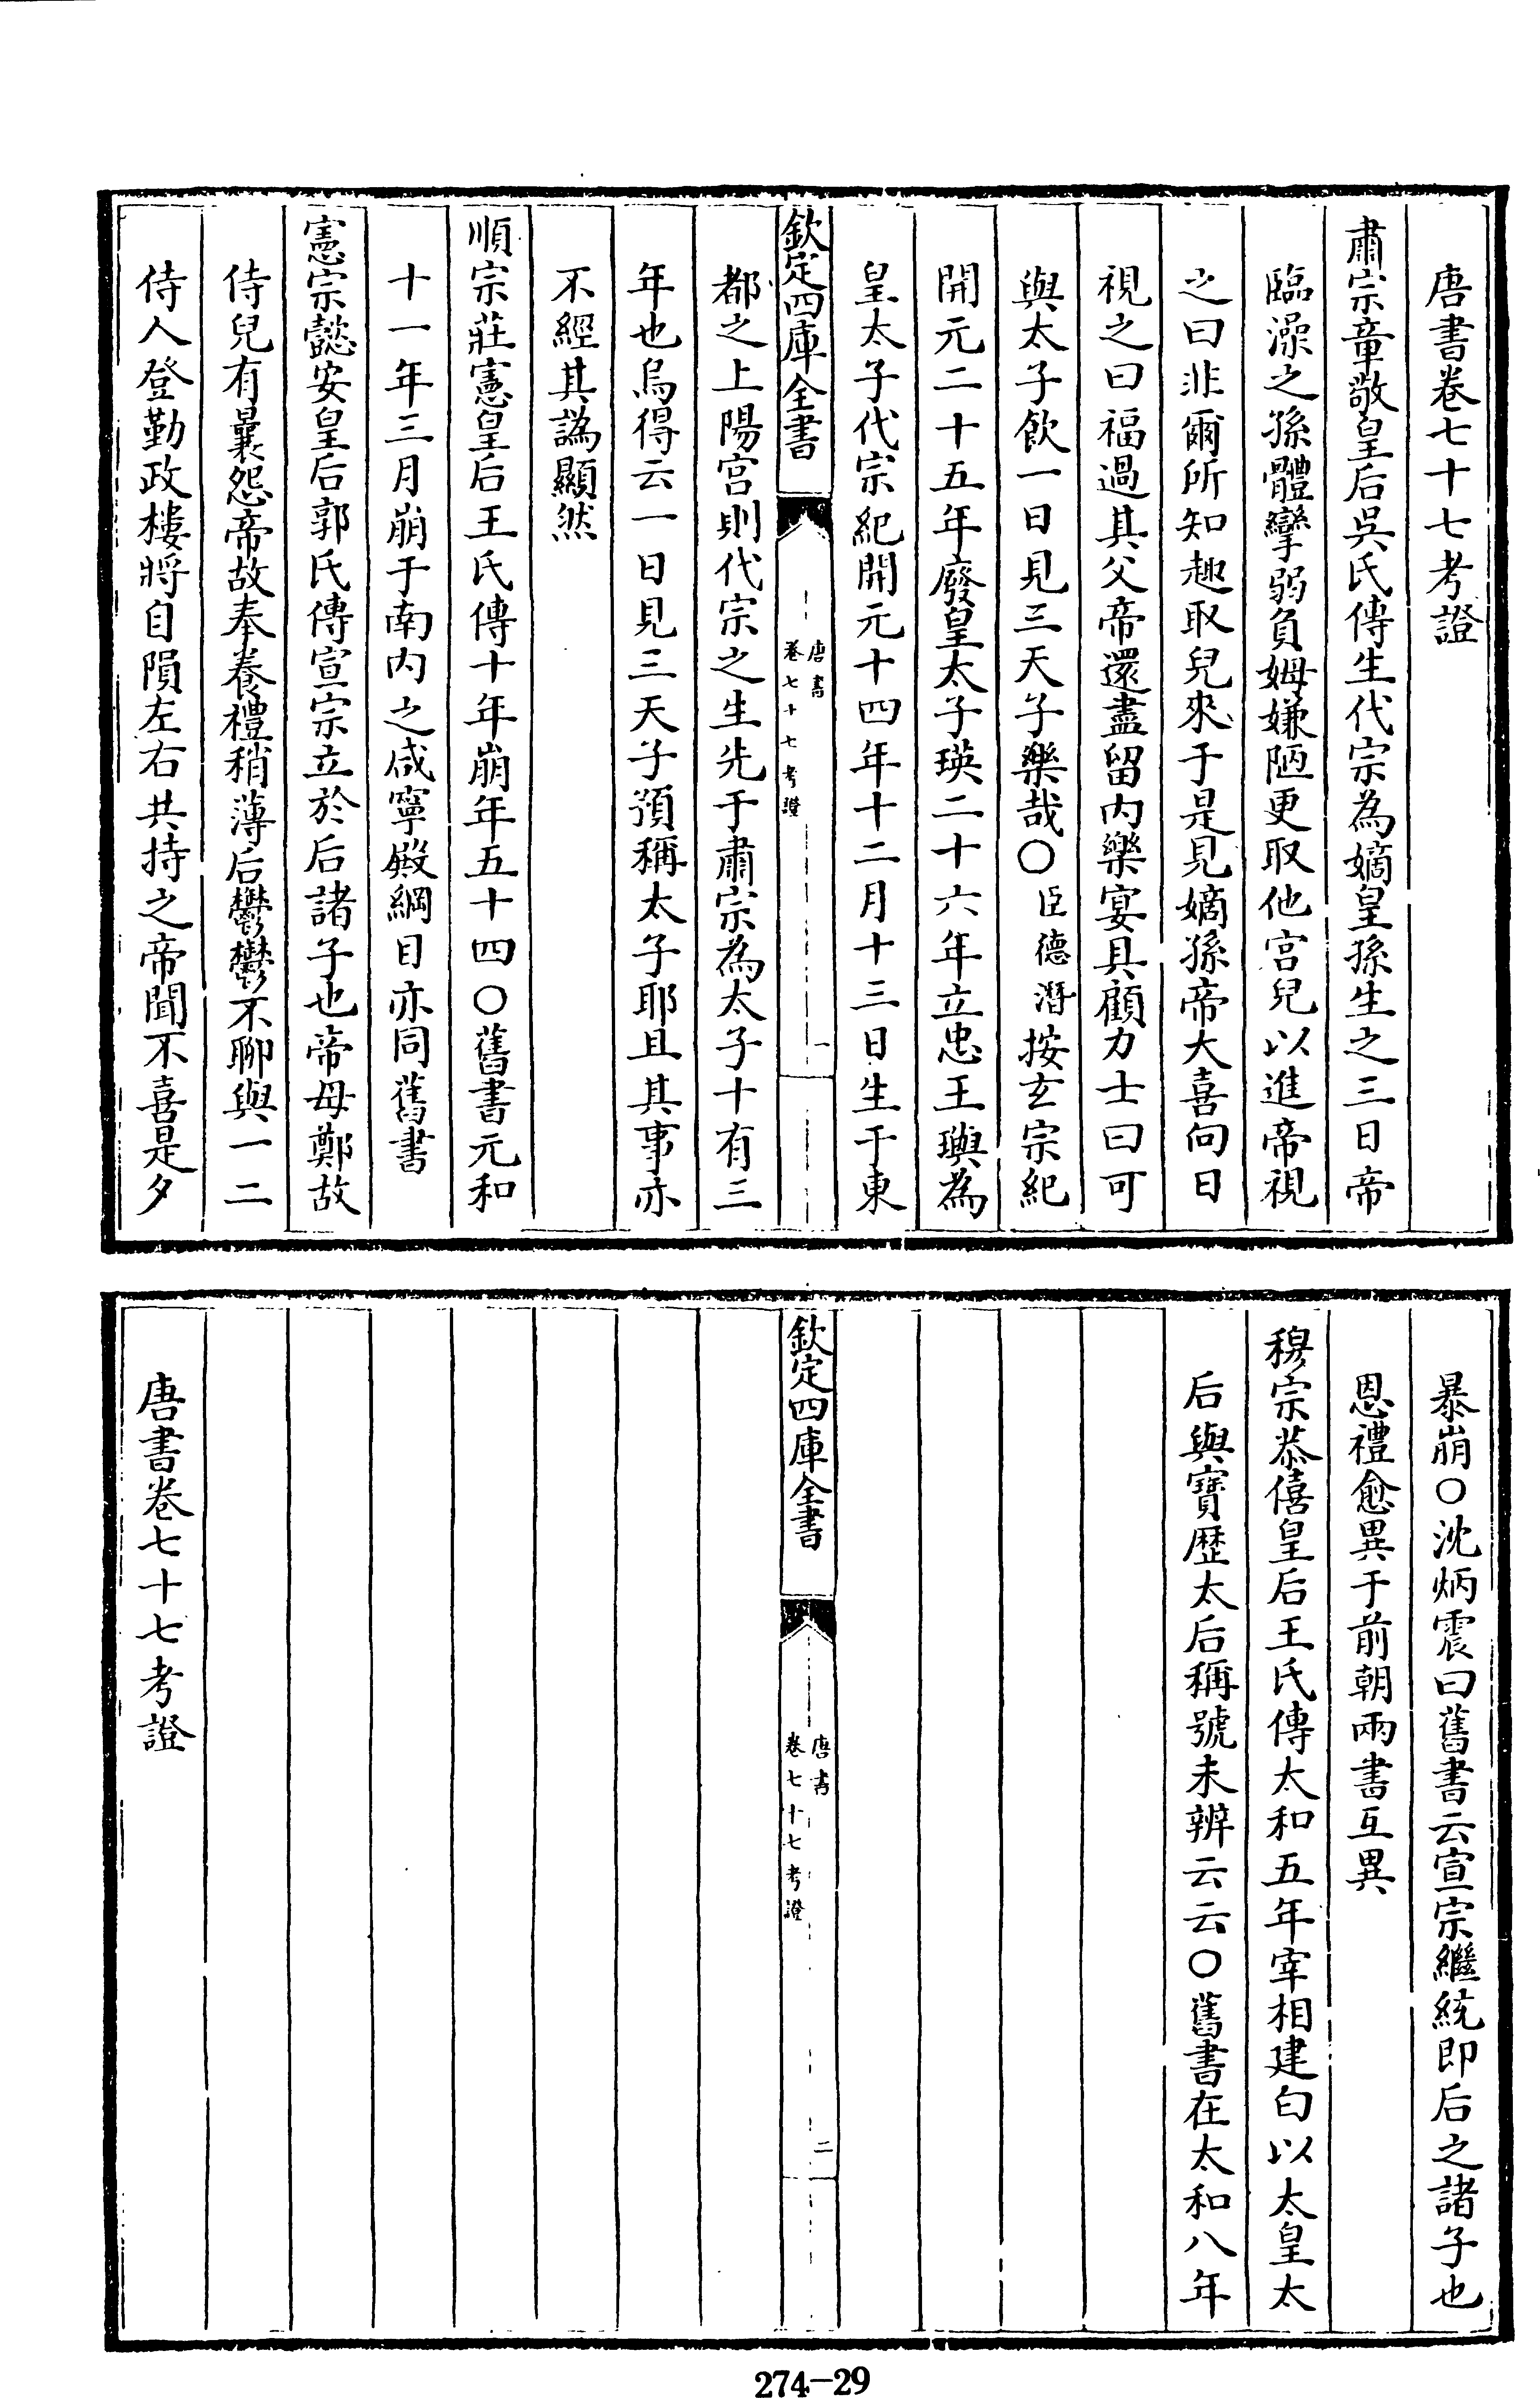 唐書卷七十七考證
肅宗章敬皇后吳氏傳生代宗為嫡皇孫生之三日帝
臨澡之孫體孿弱負姆嫌陋更取他宮兒以進帝視
之曰非爾所知趣取兒來于是見嫡孫帝大喜向日
視之曰福過其父帝還盡留內樂宴具顧力士曰可
與太子飲一日見三天子樂哉〇臣德潛按玄宗紀
開元二十五年廢皇太子瑛二十六年立忠王璵為
皇太子代宗紀開元十四年十二月十三日生于東
欽定四庫全書
唐書
卷七十七考證
一
都之上陽宮則代宗之生先于肅宗為太子十有三
年也烏得云一日見三天子預稱太子耶且其事亦
不經其譌顯然
順宗莊憲皇后王氏傳十年崩年五十四〇舊書元和
十一年三月崩于南內之咸寧殿綱目亦同舊書
憲宗懿安皇后郭氏傳宣宗立於后諸子也帝母鄭故
侍兒有曩怨帝故奉養禮稍薄后鬱鬱不聊與一二
侍人登勤政樓將自隕左右共持之帝聞不喜是夕
暴崩〇沈炳震曰舊書云宣宗繼統即后之諸子也
恩禮愈異于前朝兩書互異
穆宗恭僖皇后王氏傳太和五年宰相建白以太皇太
后與寶歷太后稱號未辨云云〇舊書在太和八年
欽定四庫全書
唐書
卷七十七考證
二
唐書卷七十七考證
274-29